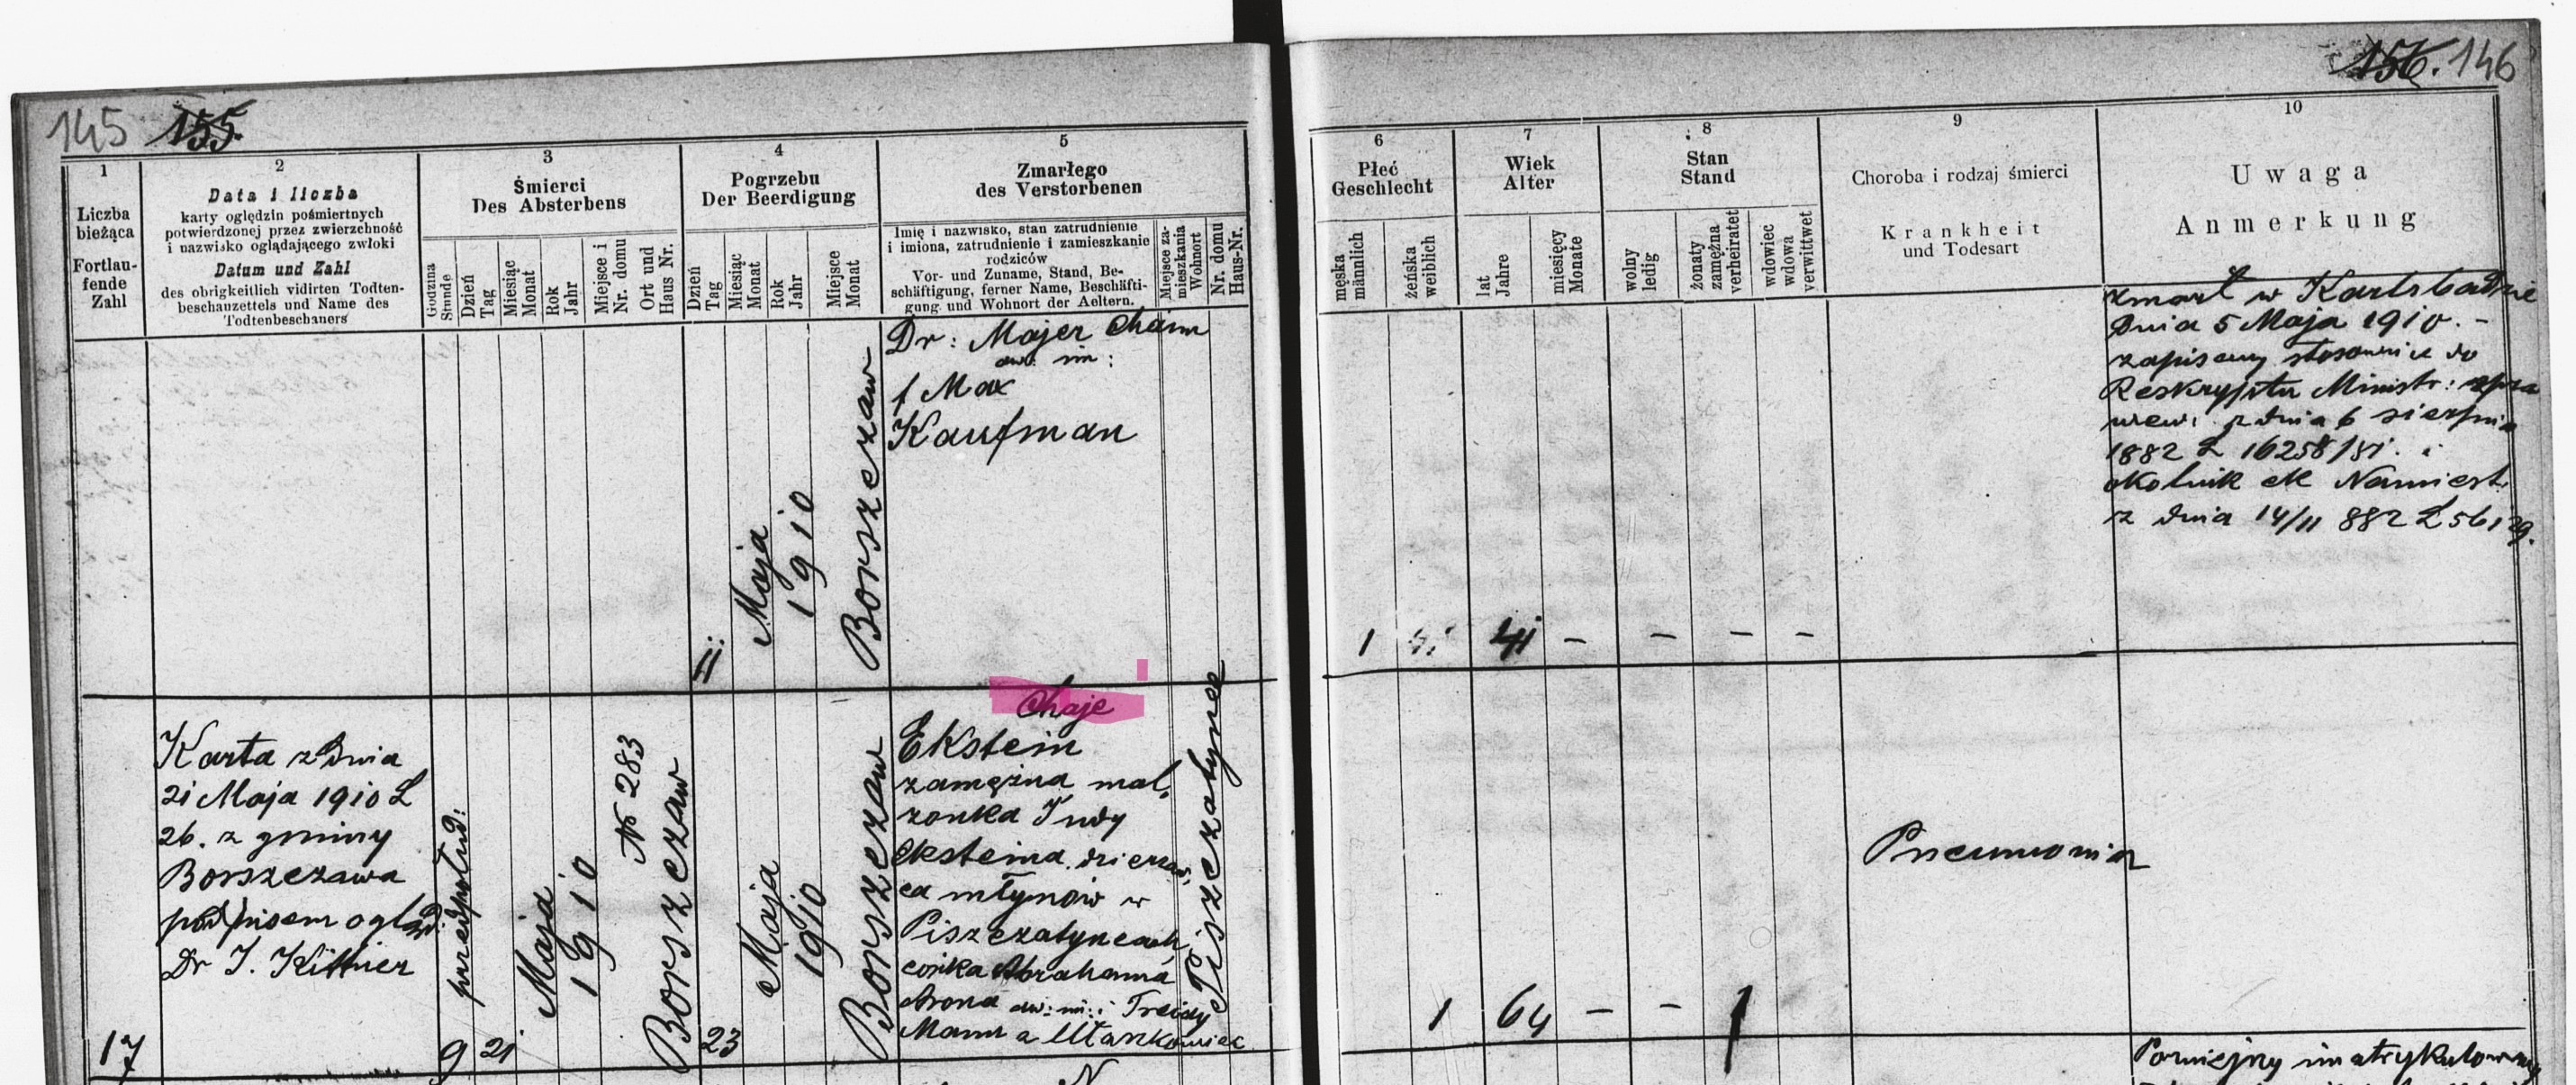 145 155.
156. 146
1
Liczba
bieżąca
Fortlau-
fende
Zahl
2
Data i liczba
karty oględzin pośmiertnych
potwierdzonej przez zwierzchność
i nazwisko oglądającego zwłoki
Datum und Zahl
des obrigkeitlich vidirten Todten-
beschauzettels und Name des
Todtenbeschauers
3
Śmierci
Des Absterbens
Godzina
Stunde
Dzień
Tag
Miesiąc
Monat
Rok
Jahr
Miejsce i
Nr. domu
Ort und
Haus Nr.
4
Pogrzebu
Der Beerdigung
Dzień
Tag
Miesiąc
Monat
Rok
Jahr
Miejsce
Monat
5
Zmarłego
des Verstorbenen
Imię i nazwisko, stan zatrudnienie
i imiona, zatrudnienie i zamieszkanie
rodziców
Vor- und Zuname, Stand, Be-
schäftigung, ferner Name, Beschäfti-
gung und Wohnort der Aeltern.
Miejsce za-
mieszkania
Wohnort
Nr. domu
Haus-Nr.
6
Płeć
Geschlecht
męska
männlich
żeńska
weiblich
7
Wiek
Alter
lat
Jahre
miesięcy
Monate
8
Stan
Stand
wolny
ledig
żonaty
zamężna
verheiratet
wdowiec
wdowa
verwittwet
9
Choroba i rodzaj śmierci
Krankheit
und Todesart
10
Uwaga
Anmerkung
11
Maja
1910
Borszczaw
Dr: Majer Chaim
dw: im:
Max
Kaufman
1
41 - - - -
zmarł w Karlsbadzie
dnia 5 Maja 1910. -
zapisany stosownie do
Reskryptu Ministr:
z dnia 6 sierpnia
1882 L 16258/81. i
okolnik ck Namiest.
z dnia 14/11 882 L 56129.
17
Karta z dnia
21 Maja 1910 L
26. z gminy
Borszczawa
podpisem ogląd.
Dr J. Kittner
9
przedpołud:
21
Maja
1910
Borszczaw
№ 283
23
Maja
1910
Borszczaw
Chaje
Ekstein
zamężna mał,
żonka Judy
Eksteina dzierżaw,
ca młynów w
Piszczatyncach
córka Abrahama
Arona dw: im: i Freidy
Mann a Ułaszkowiec
Piszczatynce
1 64 - - 1
Pneumonia